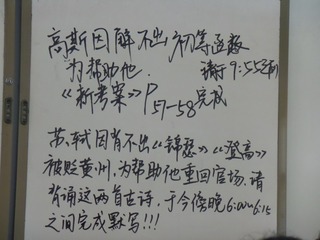 高斯因解不出初等函数
为帮助他. 请于9:55之前
《新考案》P57-58完成
苏轼因背不出《锦瑟》《登高》
被贬黄州,为帮助他重回官场,请
背诵这两首古诗,于今傍晚6:00~6:15
之间完成默写!!!